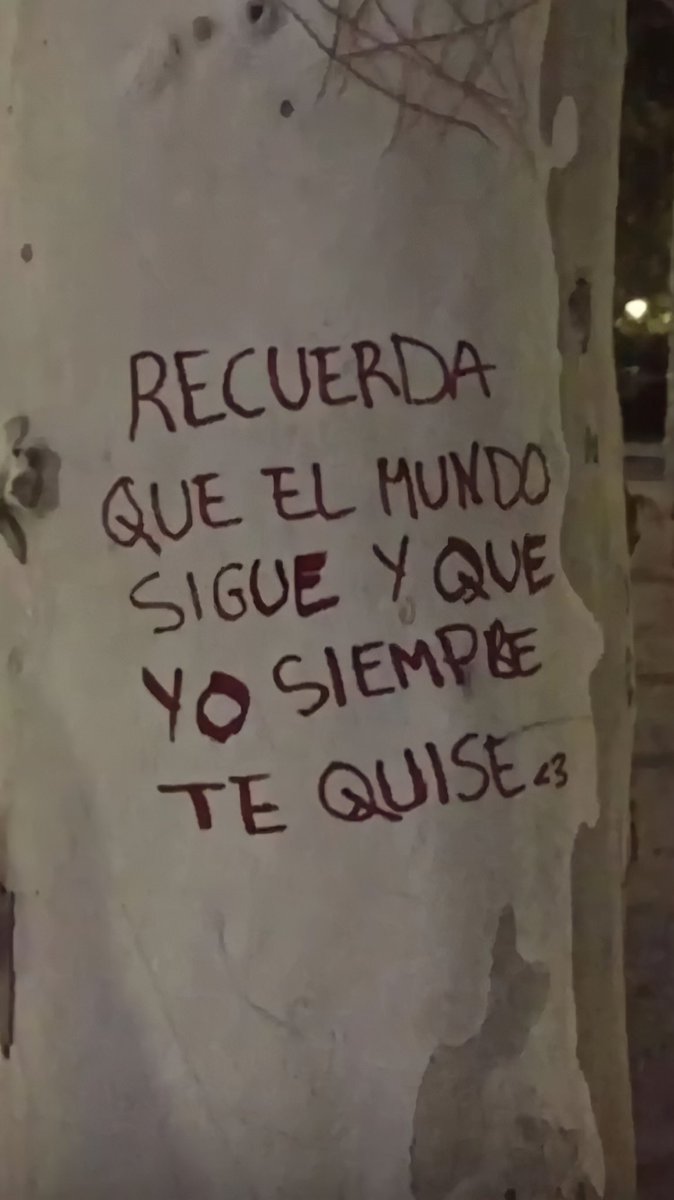 RECUERDA
QUE EL MUNDO
SIGUE Y QUE
YO SIEMPRE
TE QUISE <3